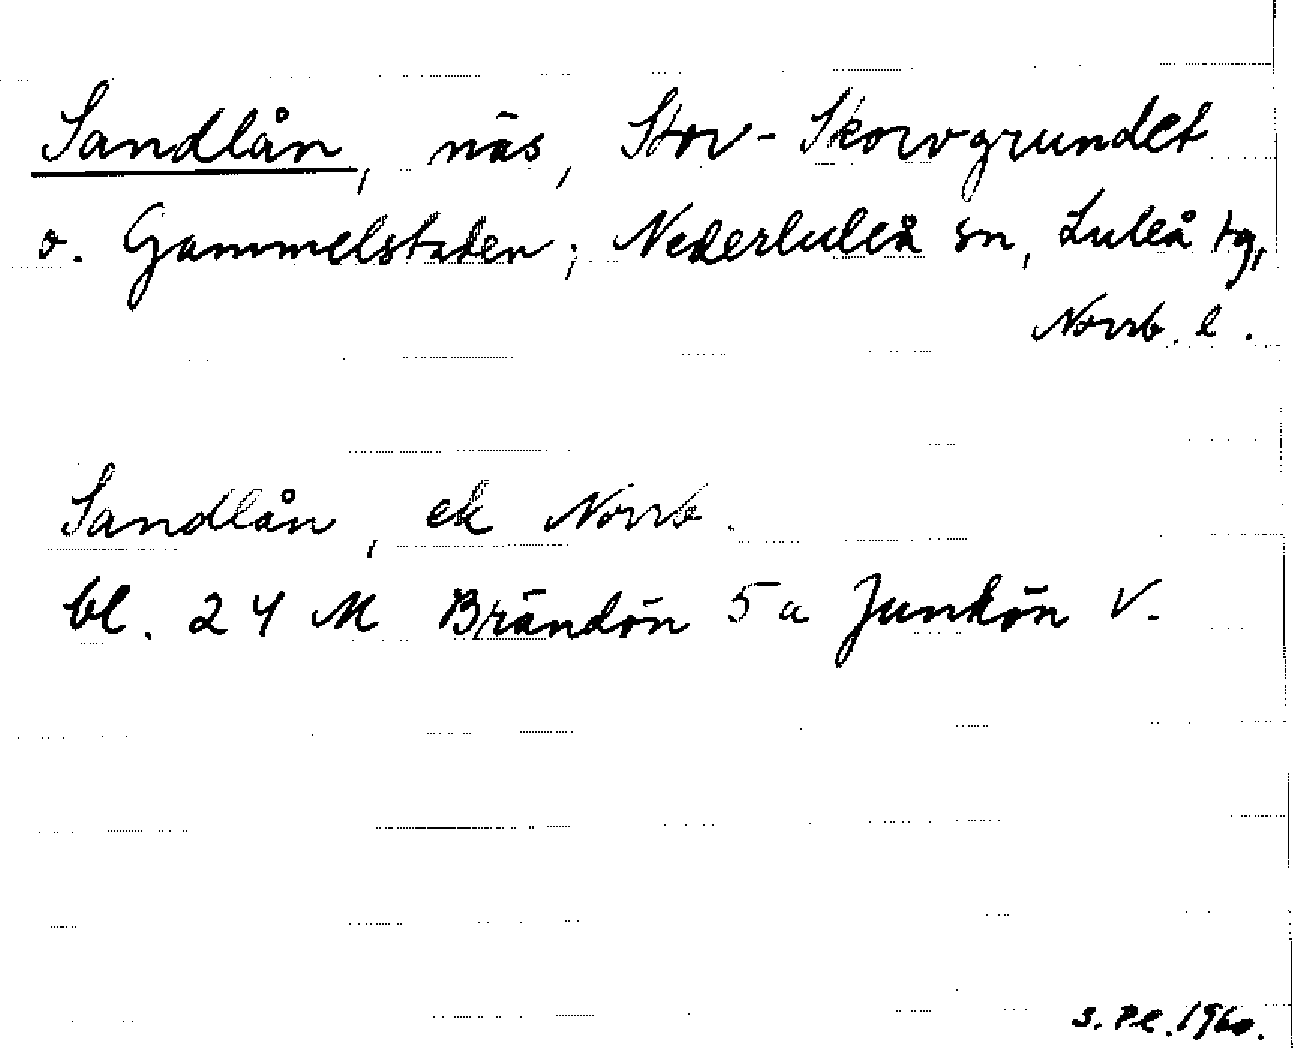 Sandlån, näs, Stor-Skorvgrundet
o. Gammelstaden; Nederluleå sn, Luleå tg,
Norrb. l.
Sandlån, ek Norrb.
bl. 24 M Brändön 5 a Junkön V.
S. Pl. 1960.